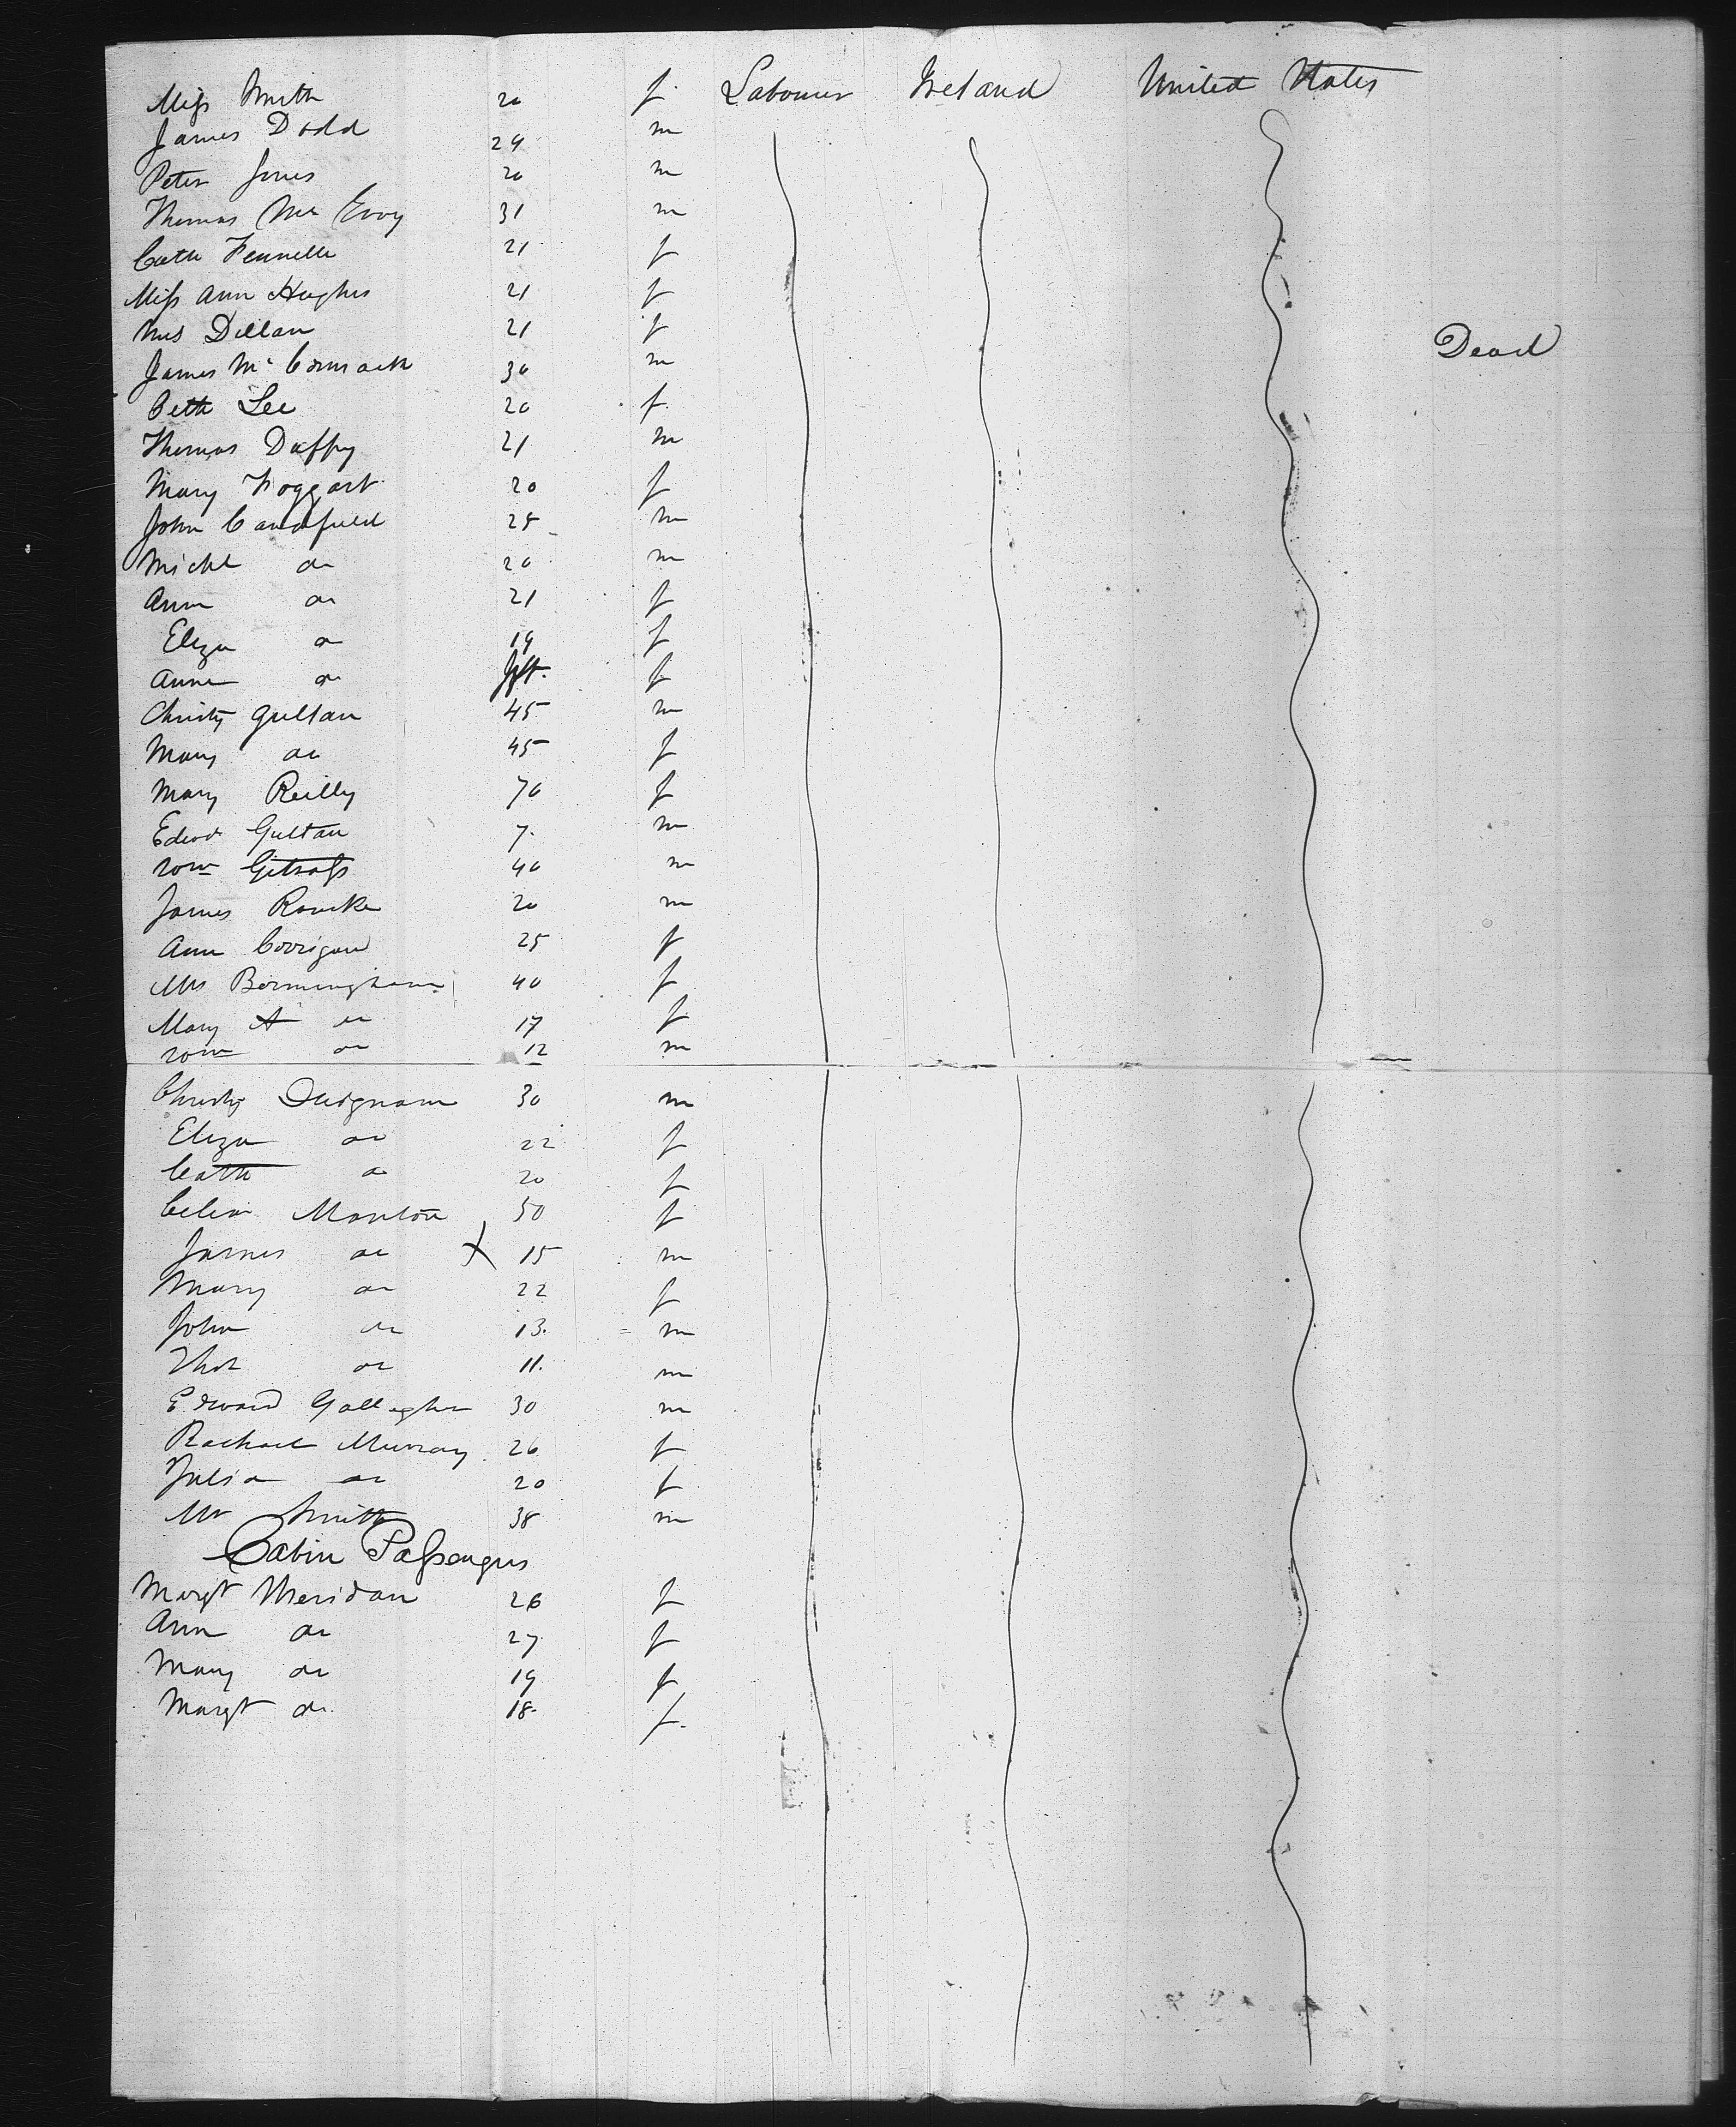 Miss Smith 20 f. Labourer Ireland United States
James Dodd 24 m
Peter Jones 20 m
Thomas Mc Evoy 31 m
Cath Fennelle 21 f
Miss Ann Hughes 21 f
Mrs Dillan 21 f
James Mc Cormack 30 m Dead
Beth Lee 20 f.
Thomas Duffy 21 m
Mary Foggart 20 f
John Caulfield 28 m
Michl do 20 m
Ann do 21 f
Eliza do 19 f
Anne do Inft. f
Christy Gultan 45 m
Mary do 45 f
Mary Reilly 70 f
Edwd Gultan 7. m
Wm 40 m
James Rourke 20 m
Ann Corrigan 25 f
Mrs Bermingham 40 f
Mary A do 17 f
Wm do 12 m
Christy Duignam 30 m
Eliza do 22 f
Cath do 20 f
Celia Manton 50 f
James do X 15 m
Mary do 22 f
John do 13. m
Thos do 11. m
Edward Gallagher 30 m
Rachael Murray 26 f
Julia do 20 f
Mr Smith 38 m
Cabin Passengers
Margt Sheridan 26 f
Ann do 27 f
Mary do 19 f
Margt do. 18. f.